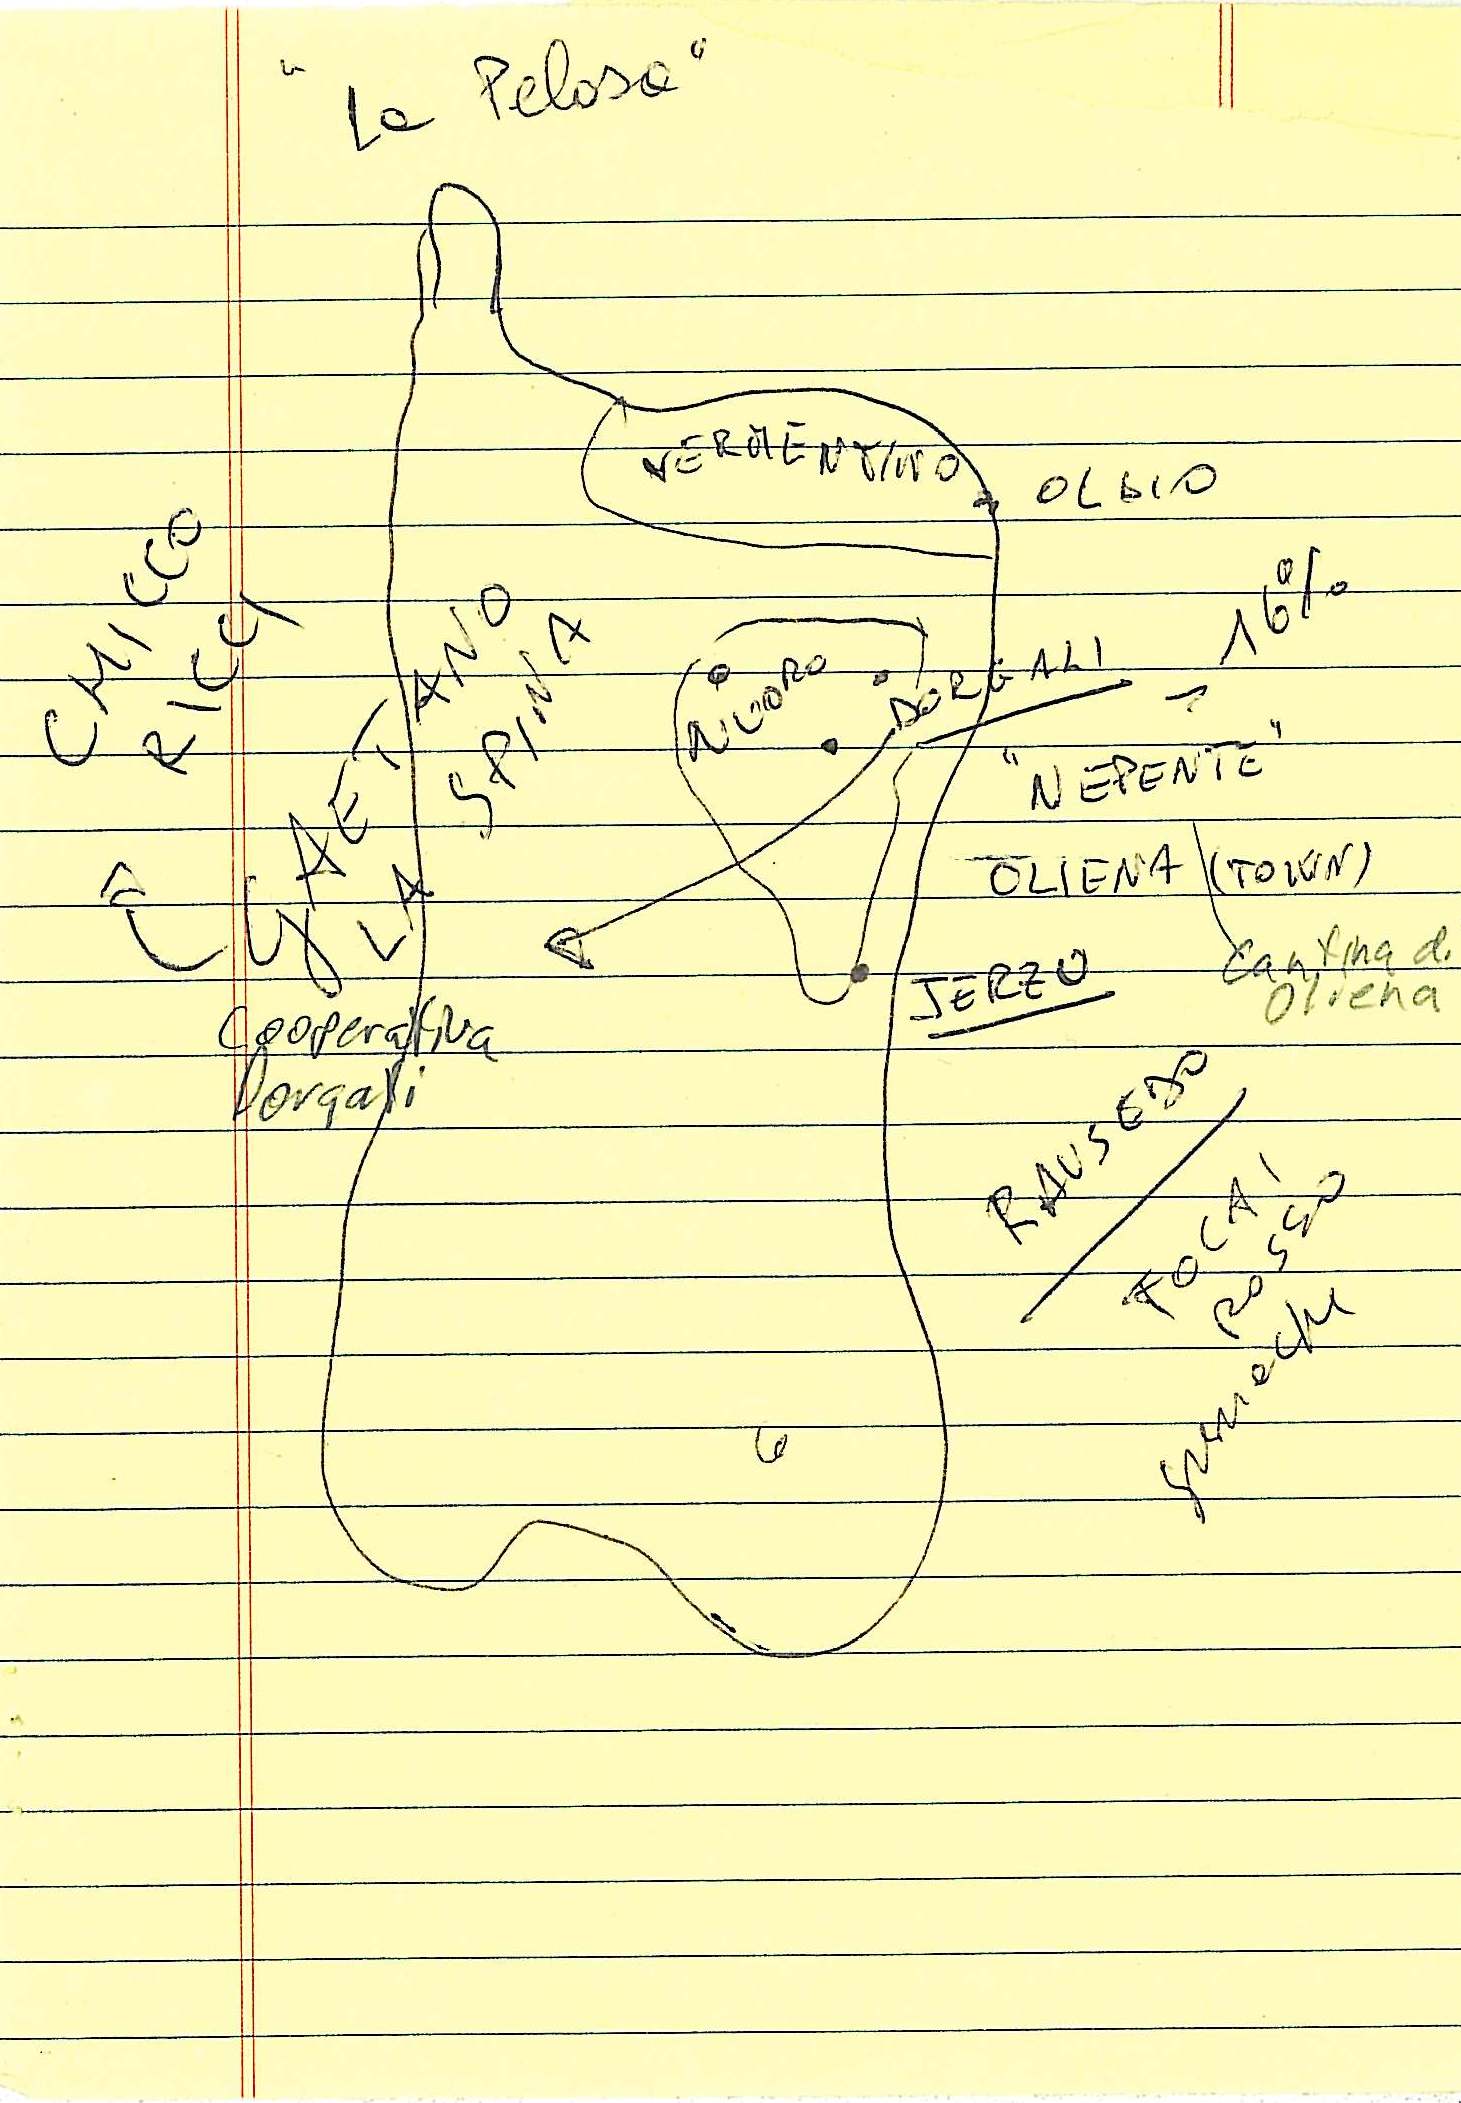 "La Pelosa"
VERMENTINO
OLBIA
CHICCO
RICCI
GAETANO
LA SPINA
16%
NUORO
DORGALI
"NEPENTE"
OLIENA (TOWN)
Cantina di
Oliena
JERZU
Cooperativa
Dorgali
RAUSEDO
TOCAI
ROSSO